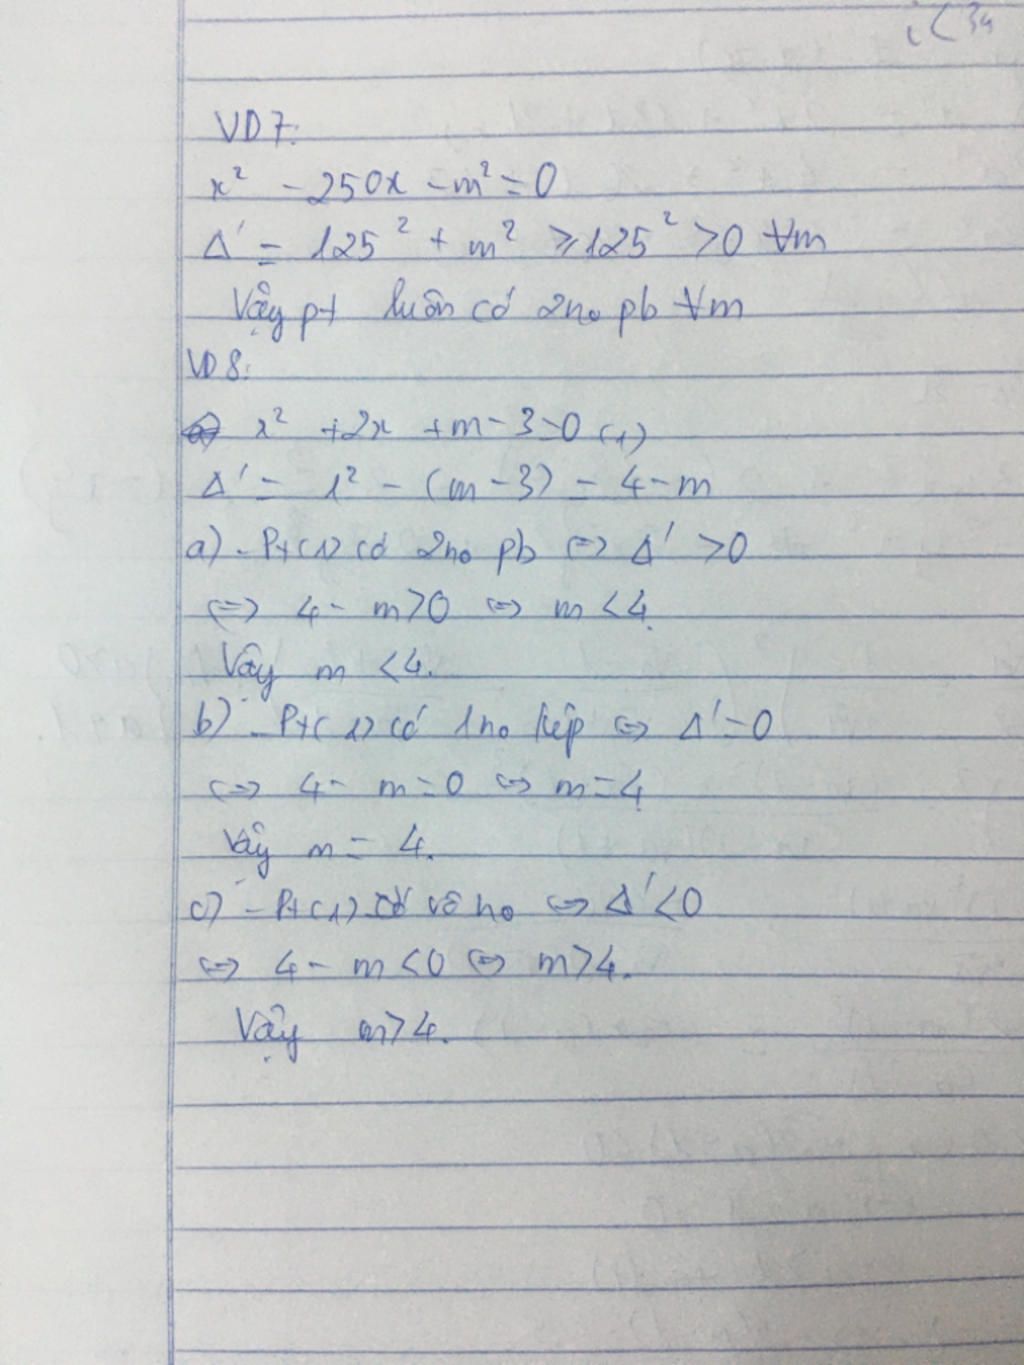 VD7:
x² - 250x - m² = 0
Δ' = 125² + m² ⩾ 125² > 0 ∀m
Vậy pt luôn có 2no pb ∀m
VD8:
x² + 2x + m - 3 = 0 (1)
Δ' = 1² - (m - 3) = 4 - m
a) - Pt(1) có 2no pb ⇔ Δ' > 0
⇔ 4 - m > 0 ⇔ m < 4.
Vậy m < 4.
b) - Pt(1) có 1no kép ⇔ Δ' = 0
⇔ 4 - m = 0 ⇔ m = 4
Vậy m = 4.
c) - Pt(1) vô no ⇔ Δ' < 0
⇔ 4 - m < 0 ⇔ m > 4.
Vậy m > 4.